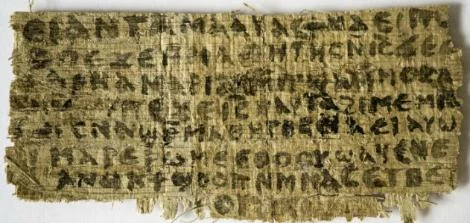 ⲉⲓ ⲁⲛ ⲧⲁⲙⲁⲁⲩ ⲁⲥϯ ⲛⲁⲉⲓ ⲡⲱ
ⲡⲉϫⲉ ⲙⲙⲁⲑⲏⲧⲏⲥ ⲛⲓⲥ ϫⲉ ⲥ
ⲁⲣⲛⲁ ⲙⲁⲣⲓⲁⲙ
ⲡⲉϫⲉ ⲓⲥ ⲛⲁⲩ ⲧⲁϩⲓⲙⲉ ⲙⲛ
ⲥⲛⲁϣⲣⲙⲁⲑⲏⲧⲏⲥ ⲛⲁⲉⲓ ⲁⲩⲱ
ⲙⲁⲣⲉⲣⲱⲙⲉ ⲉⲑⲟⲟⲩ ϣⲁϥⲉ ⲛⲉ
ⲁⲛⲟⲕ ϯϣⲟⲟⲡ ⲛⲙⲙⲁⲥ ⲉⲧⲃⲉ